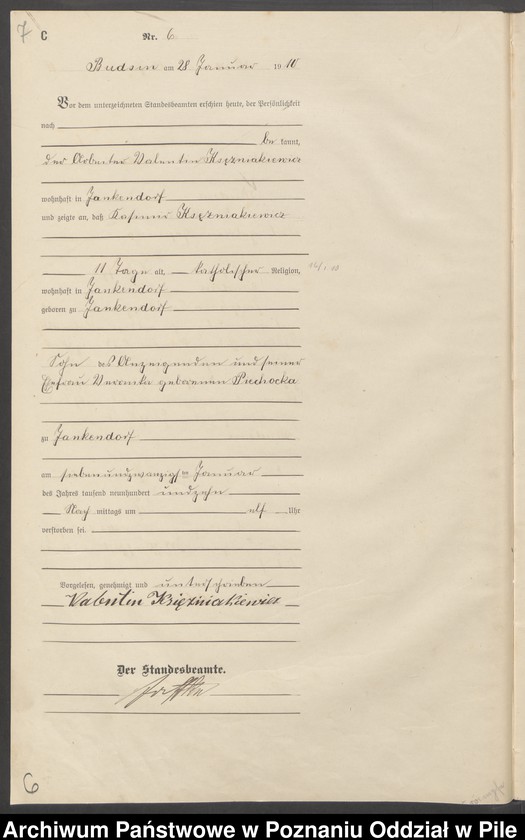 7 C Nr. 6
Budsin am 28 Januar 1910
Vor dem unterzeichneten Standesbeamten erschien heute, der Persönlichkeit
nach
bekannt,
der Arbeiter Valentin Księzniakiewicz
wohnhaft in Jankendorf
und zeigte an, daß Kasimir Księzniakiewicz
11 Tage alt, katholischer Religion,
wohnhaft in Jankendorf
geboren zu Jankendorf
Sohn des Anzeigenden und seiner
Ehefrau Veronika geborenen Piechocka
zu Jankendorf
am siebenundzwanzigsten Januar
des Jahres tausend neunhundert undzehn
Nach mittags um elf Uhr
verstorben sei.
Vorgelesen, genehmigt und unterschrieben
Valentin Księżniakiewicz
Der Standesbeamte.
6
Archiwum Państwowe w Poznaniu Oddział w Pile